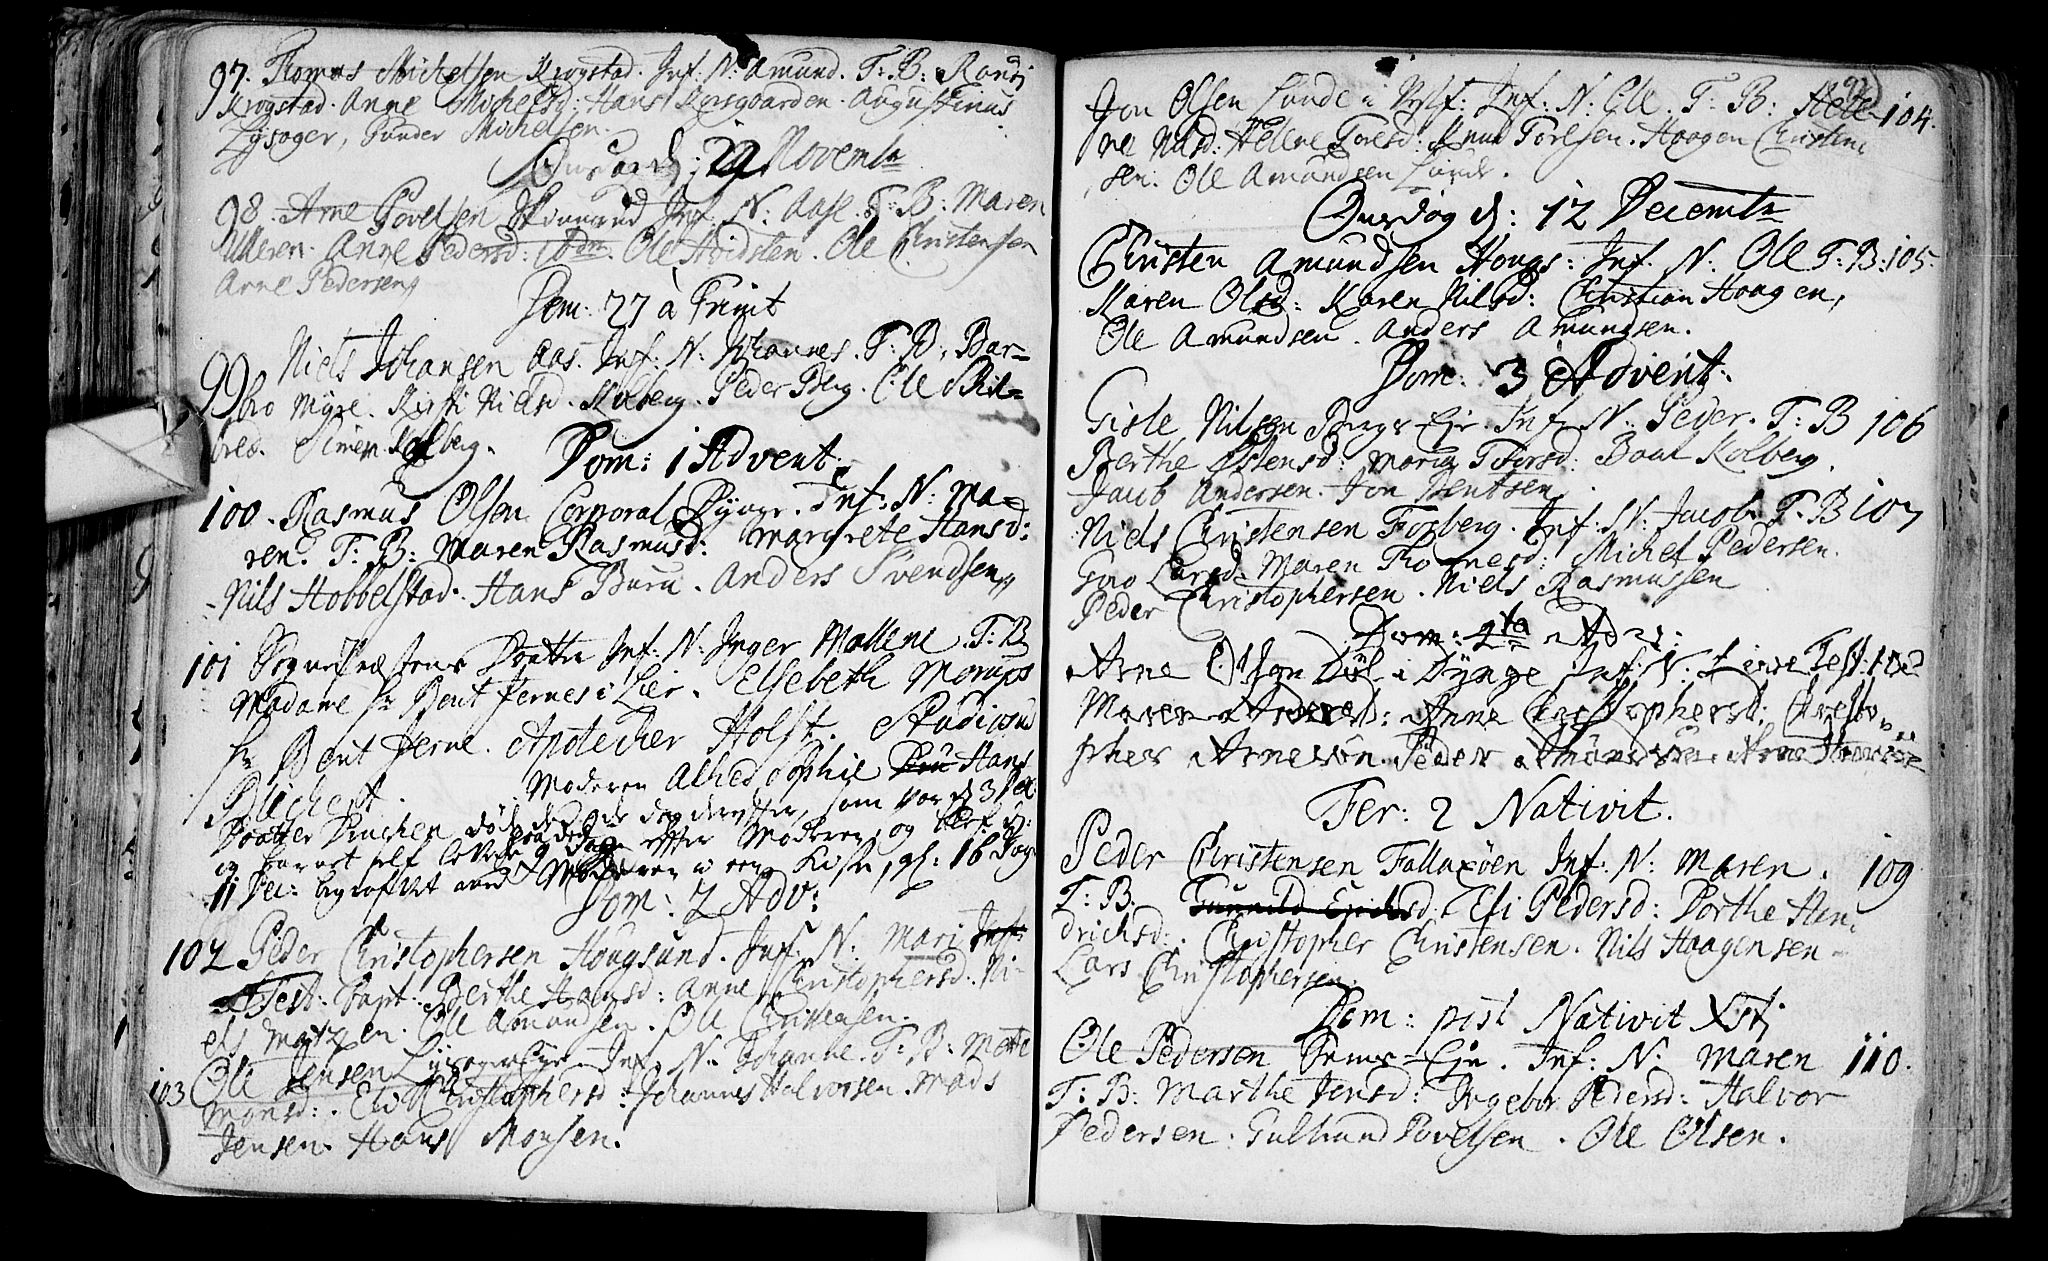 97. Thomas Michelsen Krogstad. Inf: N: Amund. T: B: Randi
Krogstad. Anne Michelsd: Hans Korsgaarden. Augustinus
Lysager, Gunder Michelsen.
Onsdag d: 29 Novembr
98. Arne Povelsen Inf: N: Aase. T: B: Maren
Ulleren. Anne Pedersd: ibdm. Ole Hvidsten. Ole Christensen
Arne Pedersen
Dom: 27 a Trinit
99 Niels Johansen Aas. Inf: N: Johannes. T: B: Bar-
bro Myre. Kirsti Nielsd. Kolberg. Peder Berg. Ole Skil-
bred. Simen Kolberg.
Dom: 1 Advent.
100. Rasmus Olsen Corporal Inf: N: Ma-
ren. T: B: Maren Rasmusd: Margrete Hansd:
Nils Hobbelstad. Hans Buru. Anders Svendsen
101 Sogne Præstens Daatter Inf: N: Inger Mallene. T: B
Madame Hr Bent Jernes i Lier. Elsebeth Morups
Hr Bent Jerne. Apotecher Holst. Studiosus
Blichert. Moderen Alhed Sophie Hans
Daatter døde dagen derefter, som var d 3 Dec:
og barnet self levede 9 dage efter Moderen, og blef d:
11 Dec: begravet med Moderen i een Kiste, gl: 16 Dage
Dom: 2 Adv:
102 Peder Christophersen Hougsund. Inf: N: Mari Inf:
Test: Bapt: Berthe Hansd: Anne Christophersd. Ni-
els Matzen. Ole Amundsen. Ole Christensen.
103 Ole Jensen Lysager Eje. Inf: N: Johanne. T: B: Mette
Monsd: Eli Christophersd: Johannes Halvorsen. Mads
Jensen. Hans Monsen.
Jon Olsen Lunde i Inf: N: Ole. T: B: Hele- 104.
ne Nilsd: Helene Toresd: Knud Toresen. Haagen Christen-
sen. Ole Amundsen Lunde.
Onsdag d: 12 Decembr
Christen Amundsen Hougs: Inf: N: Ole T: B: 105.
Maren Olsd: Karen Nilsd: Christian Haagen,
Ole Amundsen. Anders Amundsen.
Dom: 3 Advent:
Gisle Nilsen Bergs Eje. Inf: N: Peder. T: B 106
Berthe Østensd: Maria Torsd: Bout Kolberg.
Jacob Andersen. Jon Bentsen.
Niels Christensen Foxberg. Inf: N: Jacob T: B 107
Goro Larsd. Maren Thomesd: Michel Pedersen.
Peder Christophersen. Niels Rasmussen
Dom: 4ta Adv:
Arne Olsen Døl i Dynge Inf: N: Lisse Test: 108
Maren Andersd: Anne Christophersd: Christo-
pher Arnesøn. Peder Amundsøn. Arne Hansøn
Fer: 2 Nativit.
Peder Christensen Fallaxøen Inf: N: Maren. 109
T: B. Gunnild Erichsd. Eli Pedersd: Dorthe Hen-
drichsd: Christopher Christensen. Nils Haagensen
Lars Christophersen.
Dom: post Nativit Xsti
Ole Pedersen Sems-Eje. Inf: N: Maren 110.
T: B: Marthe Jensd: Ingebor Pedersd: Halvor
Pedersen: Gulbrand Povelsen. Ole Olsen.